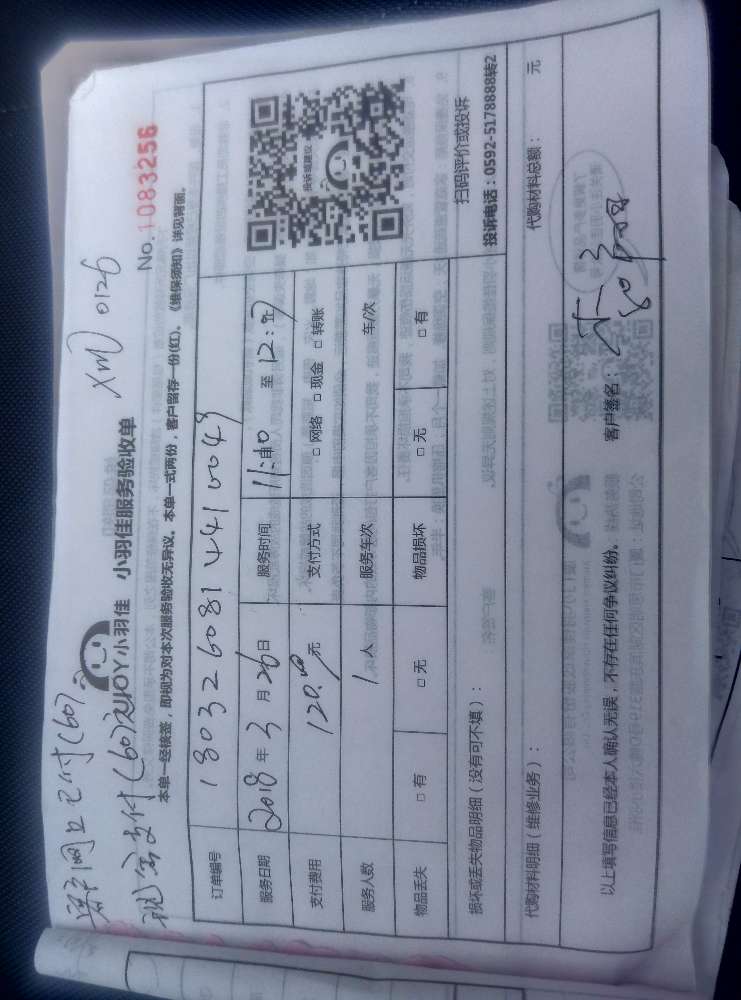 客户网上已付(60)
现金支付(60)
XM 0126
XJOY小羽佳 小羽佳服务验收单
No.1083256
本单一经核签，即视为对本次服务验收无异议。本单一式两份，客户留存一份(红)。《维保须知》详见背面。
订单编号 180326081441 0049
服务日期 2018 年 3 月 26 日 服务时间 11:40 至 12:
支付费用 120.00 元 支付方式 □ 网络 □ 现金 □ 转账
服务人数 1 人 服务车次 车/次
物品丢失 □ 有 □ 无 物品损坏 □ 无 □ 有
投诉或建议
扫码评价或投诉
投诉电话：0592-5178888转2
损坏或丢失物品明细（没有可不填）：
代购材料明细（维修业务）： 代购材料总额： 元
以上填写信息已经本人确认无误，不存在任何争议纠纷。 客户签名：